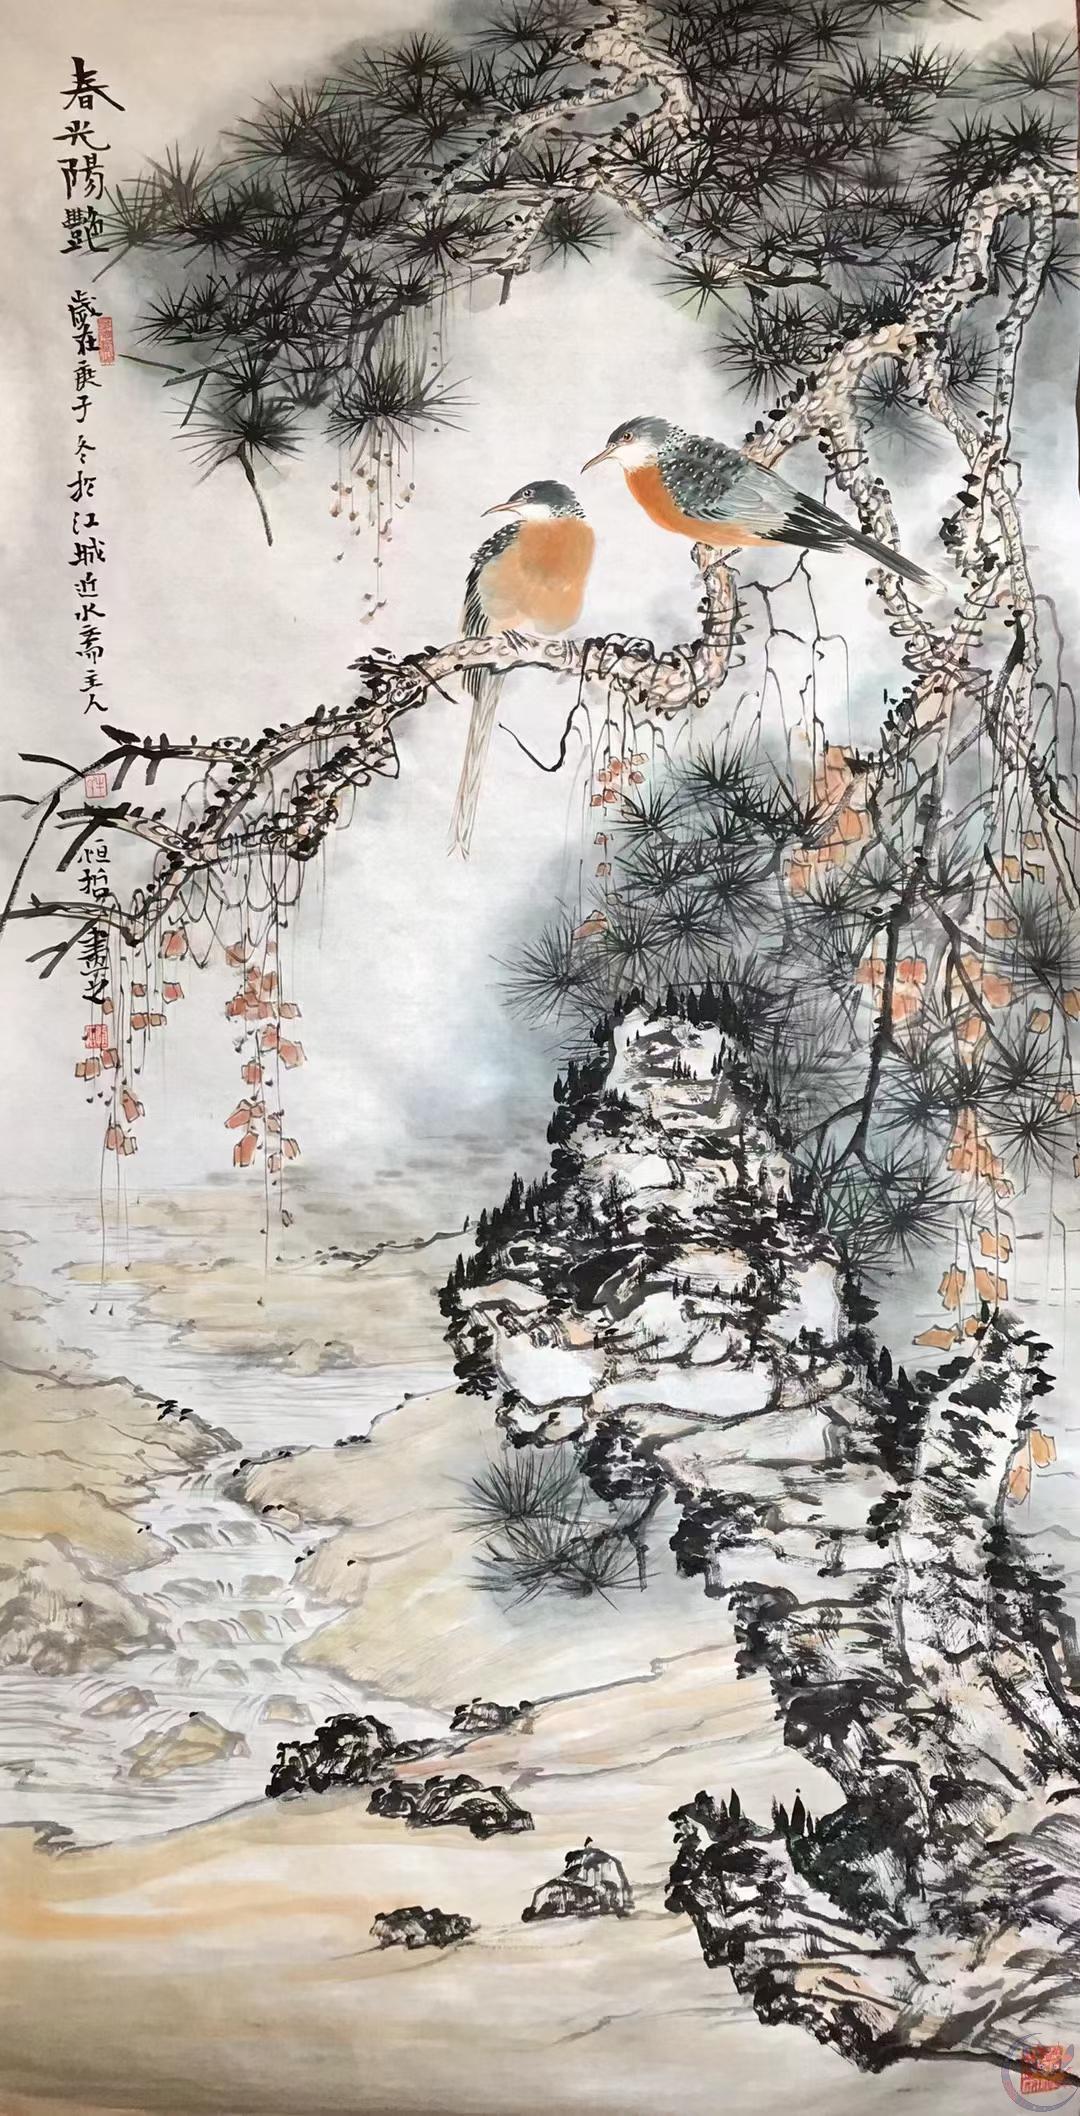 春光陽艷
歲在庚子冬於江城近水齋主人
恒哲畫之